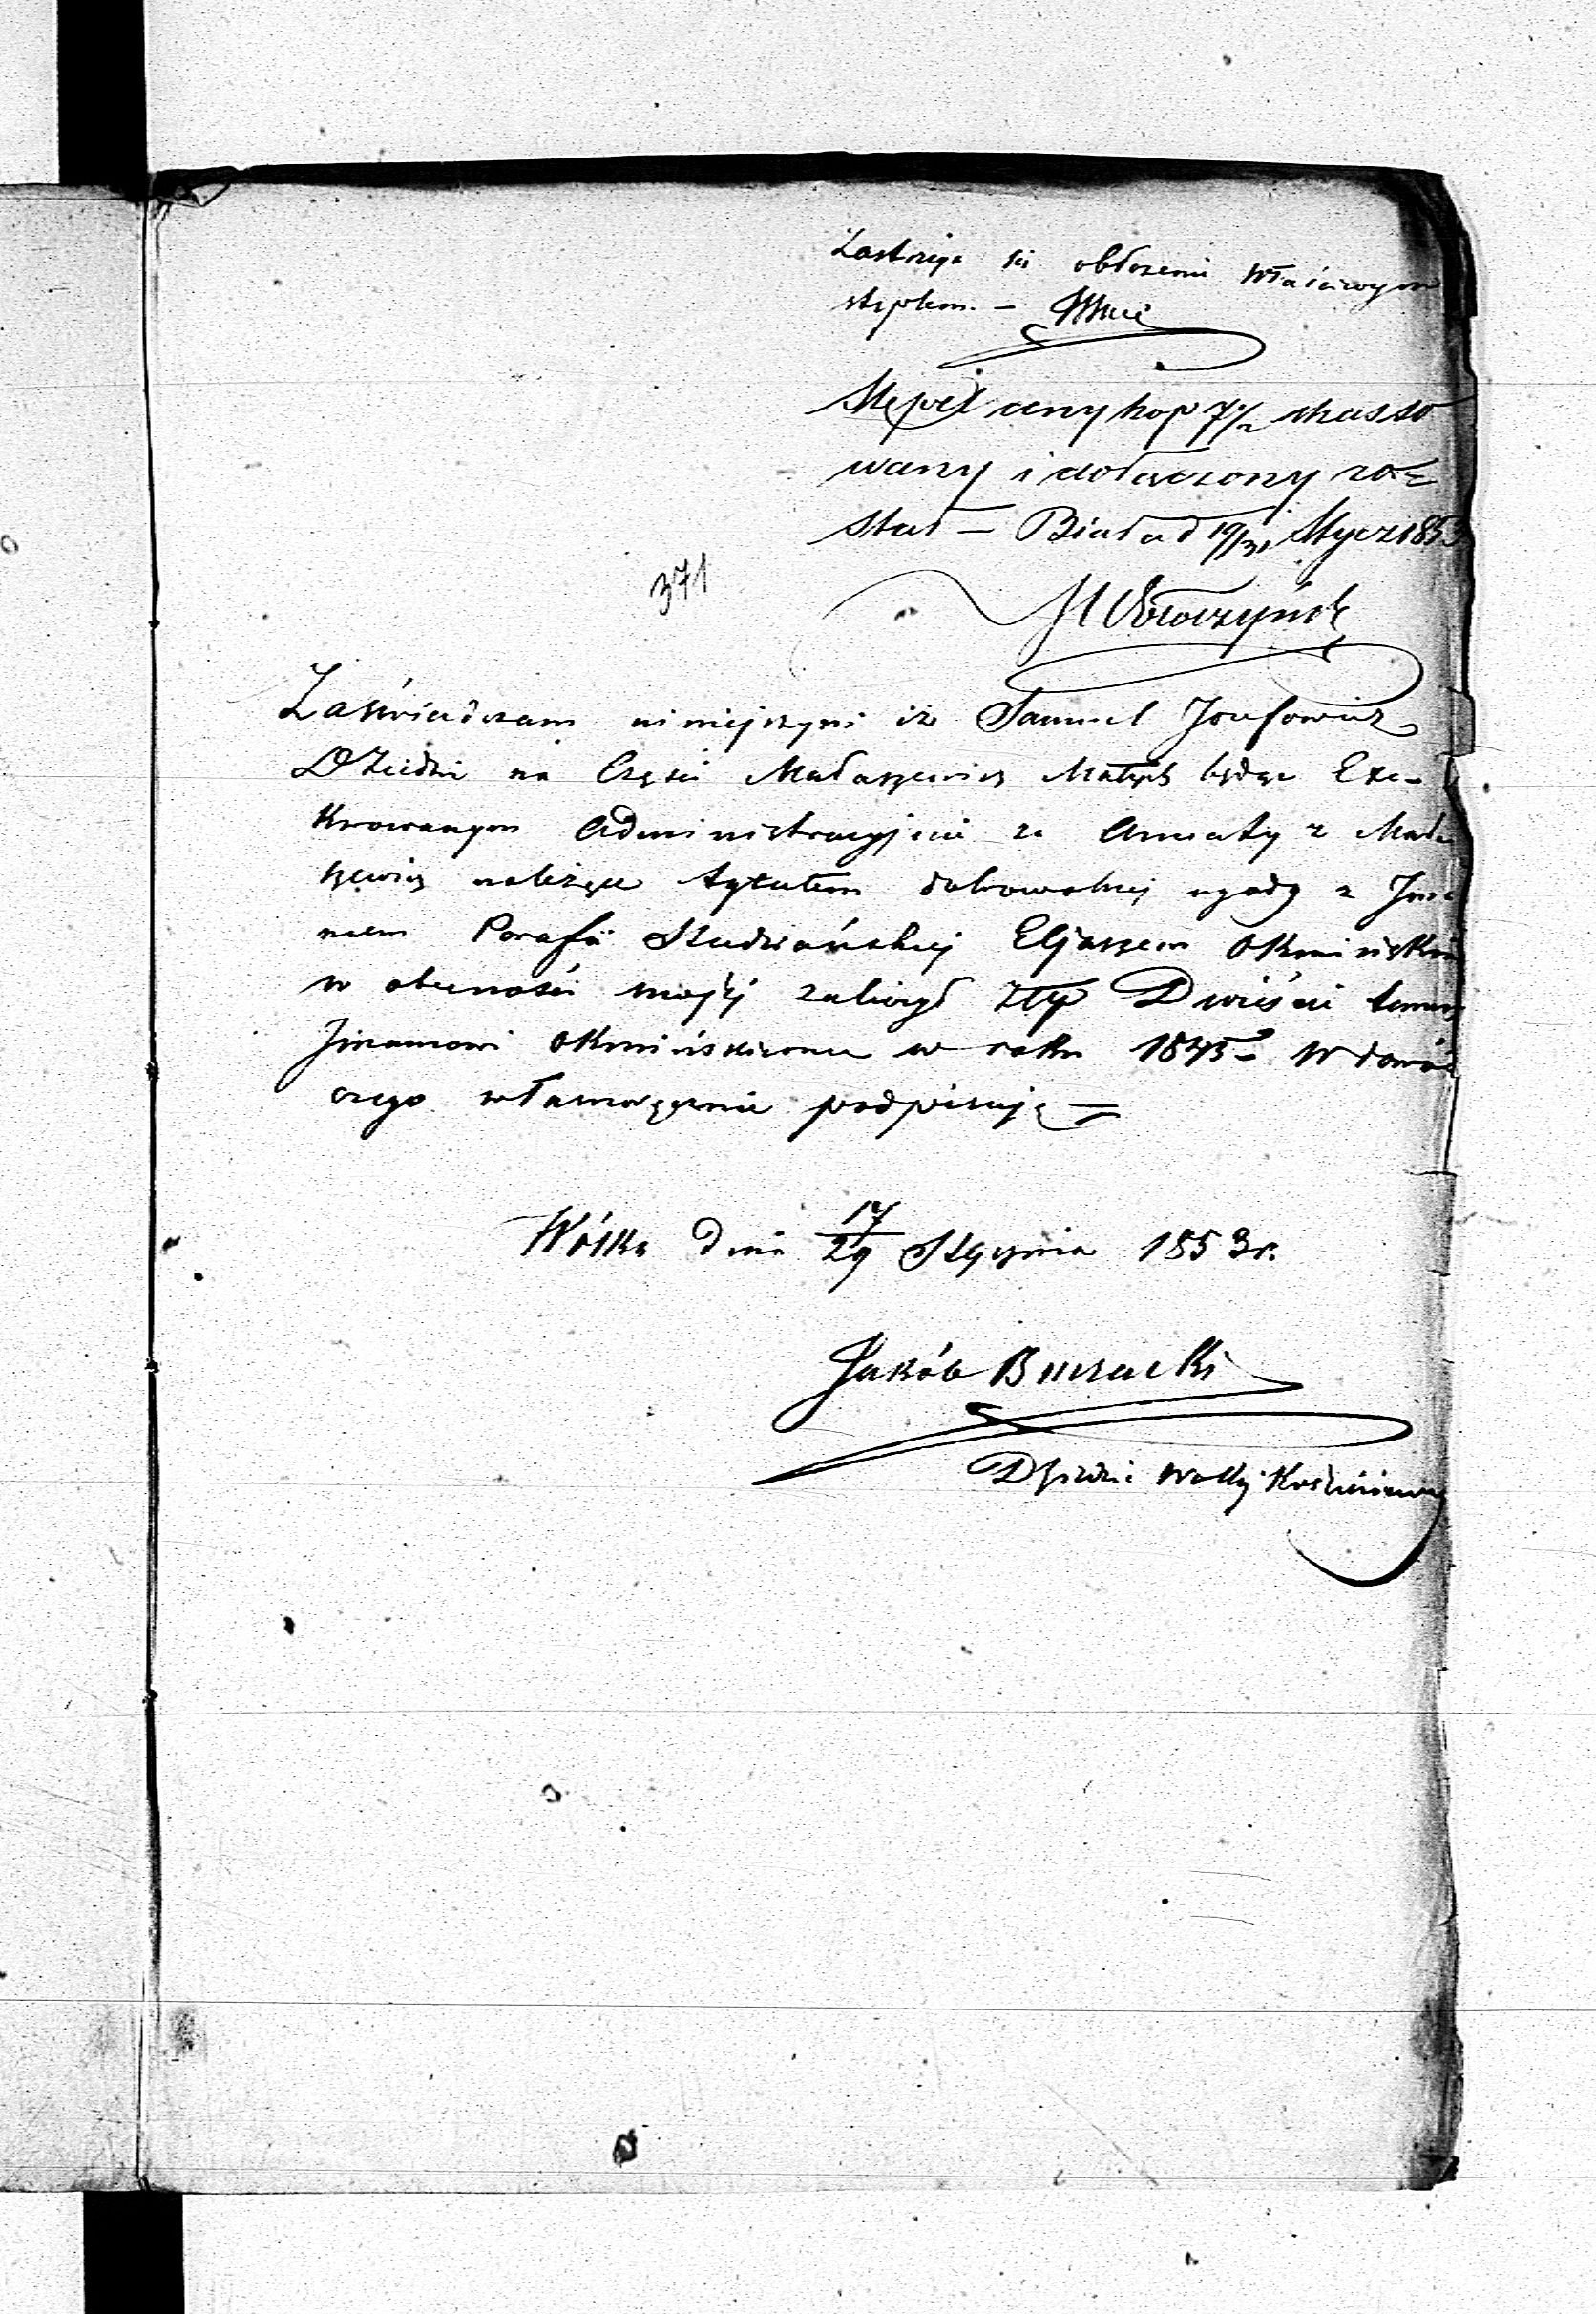 Zastrzega się obłożenie właściwym
stęplem. —
Stępel ceny kop 7½ skasso
wany i dołączony zo=
stał — Biała d 19/31 Stycz 1853
371
Zaświadczam niniejszym iż Samuel Josefowicz
Dziedzic na Części Małaszewicz Małych będąc Exe-
kwowanym Administracyjnie za Annuaty z Mała
szewicz należące tytułem dobrowolnej ugody z Jmx
niem Parafii Studziańskiej Eljaszem Okmińskim
w obecności mojej zaliczył Złp Dwieście temuż
Jmxanowi Okmińskiemu w roku 1845 — W dowód
czego własnoręcznie podpisuję —
Wólka dnia 17/29 Stycznia 1853 r.
Jakób Buczacki
Dziedzic Wólki Kościeniewic